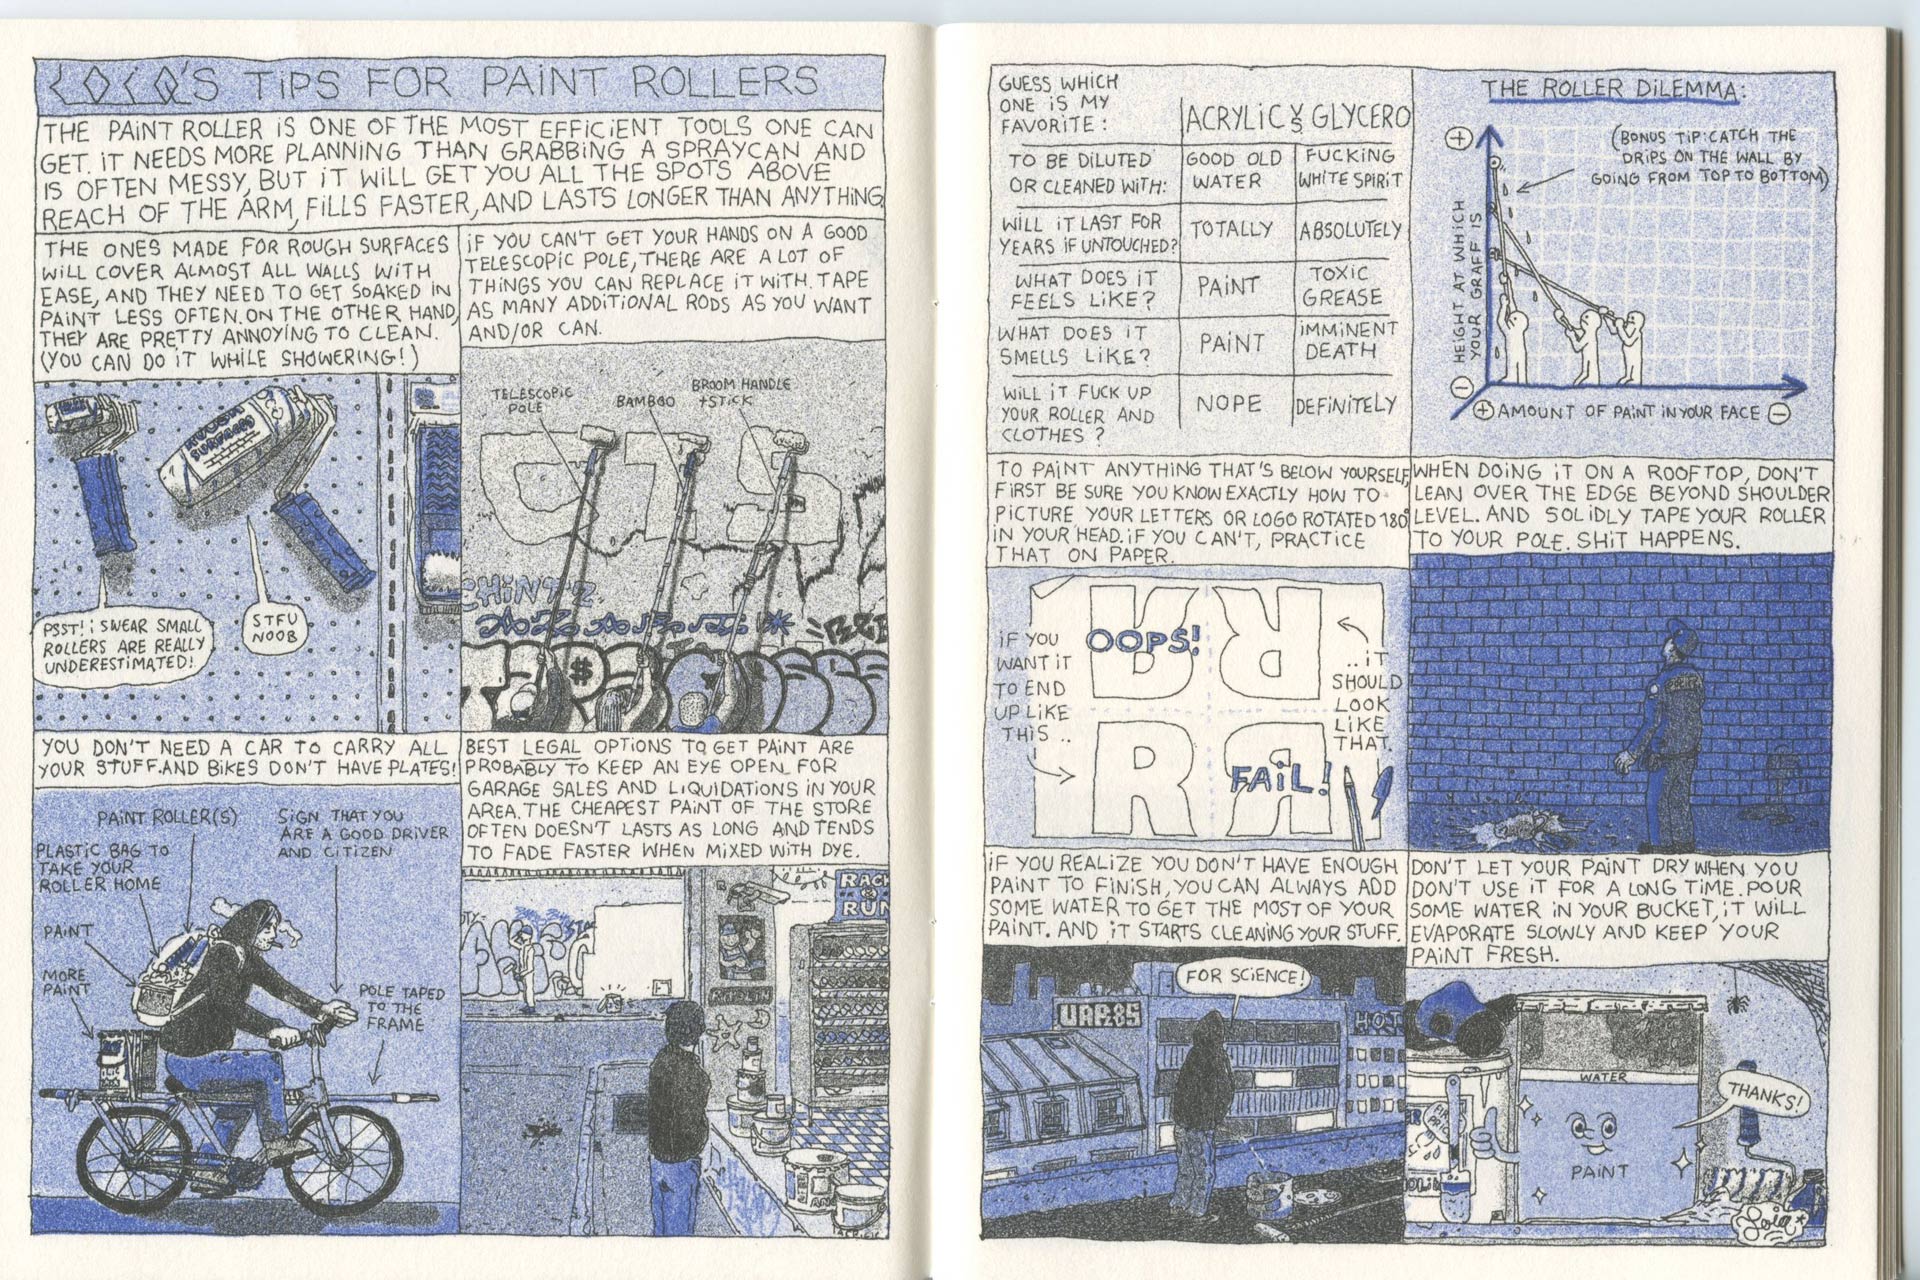 LOIQ'S TIPS FOR PAINT ROLLERS
THE PAINT ROLLER IS ONE OF THE MOST EFFICIENT TOOLS ONE CAN
GET. IT NEEDS MORE PLANNING THAN GRABBING A SPRAYCAN AND
IS OFTEN MESSY, BUT IT WILL GET YOU ALL THE SPOTS ABOVE
REACH OF THE ARM, FILLS FASTER, AND LASTS LONGER THAN ANYTHING
THE ONES MADE FOR ROUGH SURFACES
WILL COVER ALMOST ALL WALLS WITH
EASE, AND THEY NEED TO GET SOAKED IN
PAINT LESS OFTEN. ON THE OTHER HAND,
THEY ARE PRETTY ANNOYING TO CLEAN.
(YOU CAN DO IT WHILE SHOWERING!)
ROUGH
SURFACES
PSST! I SWEAR SMALL
ROLLERS ARE REALLY
UNDERESTIMATED!
STFU
NOOB
IF YOU CAN'T GET YOUR HANDS ON A GOOD
TELESCOPIC POLE, THERE ARE A LOT OF
THINGS YOU CAN REPLACE IT WITH. TAPE
AS MANY ADDITIONAL RODS AS YOU WANT
AND/OR CAN.
TELESCOPIC
POLE
BAMBOO
BROOM HANDLE
+STICK
YOU DON'T NEED A CAR TO CARRY ALL
YOUR STUFF. AND BIKES DON'T HAVE PLATES!
PAINT ROLLER(S)
SIGN THAT YOU
ARE A GOOD DRIVER
AND CITIZEN
PLASTIC BAG TO
TAKE YOUR
ROLLER HOME
PAINT
MORE
PAINT
POLE TAPED
TO THE
FRAME
BEST LEGAL OPTIONS TO GET PAINT ARE
PROBABLY TO KEEP AN EYE OPEN FOR
GARAGE SALES AND LIQUIDATIONS IN YOUR
AREA. THE CHEAPEST PAINT OF THE STORE
OFTEN DOESN'T LASTS AS LONG AND TENDS
TO FADE FASTER WHEN MIXED WITH DYE.
RACK
&
RUN
GUESS WHICH
ONE IS MY
FAVORITE:
ACRYLIC VS GLYCERO
TO BE DILUTED
OR CLEANED WITH:
GOOD OLD
WATER
FUCKING
WHITE SPIRIT
WILL IT LAST FOR
YEARS IF UNTOUCHED?
TOTALLY
ABSOLUTELY
WHAT DOES IT
FEELS LIKE?
PAINT
TOXIC
GREASE
WHAT DOES IT
SMELLS LIKE?
PAINT
IMMINENT
DEATH
WILL IT FUCK UP
YOUR ROLLER AND
CLOTHES?
NOPE
DEFINITELY
THE ROLLER DILEMMA:
(BONUS TIP: CATCH THE
DRIPS ON THE WALL BY
GOING FROM TOP TO BOTTOM)
+
HEIGHT AT WHICH
YOUR GRAFF IS
-
+ AMOUNT OF PAINT IN YOUR FACE -
TO PAINT ANYTHING THAT'S BELOW YOURSELF,
FIRST BE SURE YOU KNOW EXACTLY HOW TO
PICTURE YOUR LETTERS OR LOGO ROTATED 180°
IN YOUR HEAD. IF YOU CAN'T, PRACTICE
THAT ON PAPER.
IF YOU
WANT IT
TO END
UP LIKE
THIS ..
OOPS!
R
FAIL!
..IT
SHOULD
LOOK
LIKE
THAT.
WHEN DOING IT ON A ROOFTOP, DON'T
LEAN OVER THE EDGE BEYOND SHOULDER
LEVEL. AND SOLIDLY TAPE YOUR ROLLER
TO YOUR POLE. SHIT HAPPENS.
IF YOU REALIZE YOU DON'T HAVE ENOUGH
PAINT TO FINISH, YOU CAN ALWAYS ADD
SOME WATER TO GET THE MOST OF YOUR
PAINT. AND IT STARTS CLEANING YOUR STUFF.
FOR SCIENCE!
HOT
DON'T LET YOUR PAINT DRY WHEN YOU
DON'T USE IT FOR A LONG TIME. POUR
SOME WATER IN YOUR BUCKET, IT WILL
EVAPORATE SLOWLY AND KEEP YOUR
PAINT FRESH.
WATER
THANKS!
PAINT